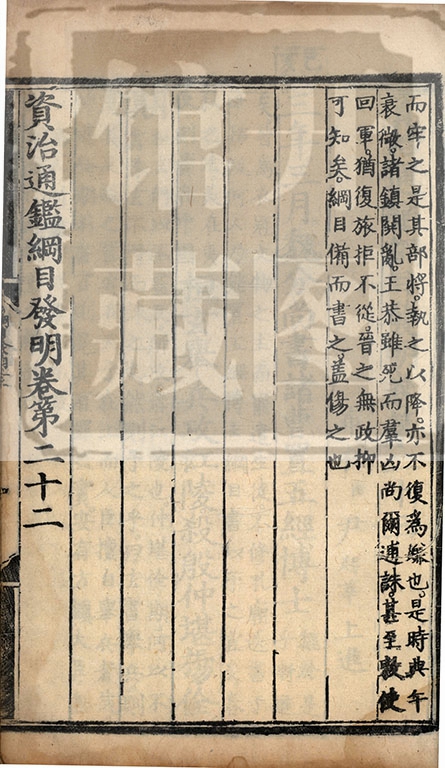 而牢之是其部將執之以降亦不復爲也是時典午
衰微諸鎮亂王恭雖死而羣凶尚爾逋誅甚至數使
回軍猶復旅拒不從晉之無政抑
可知矣綱目備而書之蓋傷之也
資治通鑑綱目發明卷第二十二
馆
藏图